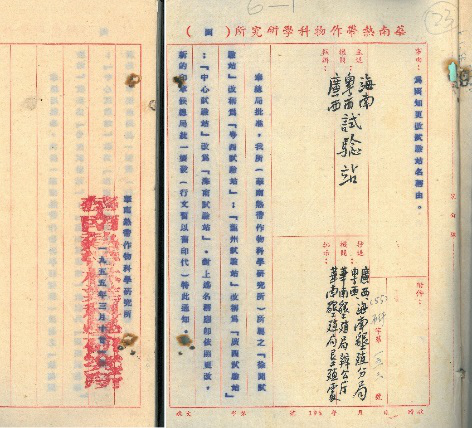 6-1
23
華南熱帶作物科學研究所（函）
事由：為函知更改試驗站名稱由。
附件：
主送機關：
海南
粵西 試驗站
廣西
抄送機關：
廣西 海南墾殖分局
粵西
華南墾殖局辦公
華南墾殖局墾殖處
字第 號
奉總局批准，我所（華南熱帶作物科學研究所）所屬之『徐聞試
驗站』改稱為『粵西試驗站』；『龍州試驗站』改稱為『廣西試驗站』
；『中心試驗站』改為『海南試驗站』．對上述名稱即依照更改，
新的印章候總局統一頒發（行文暫以舊印代）特此通知。
華南熱帶作物科學研究所
一九五五年三月十日